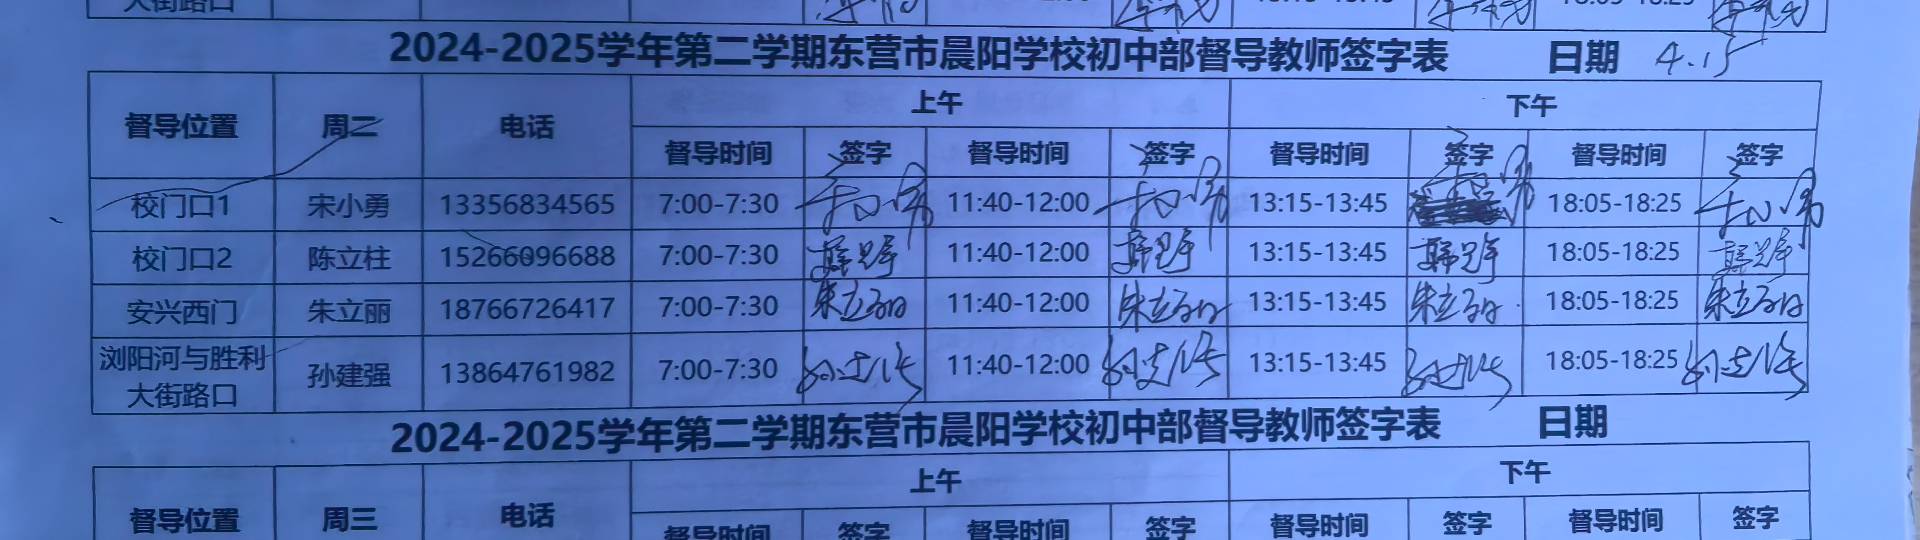 大街路口 13:15-13:45 18:05-18:25
2024-2025学年第二学期东营市晨阳学校初中部督导教师签字表 日期 4.15
督导位置 周二 电话 上午 下午
督导时间 签字 督导时间 签字 督导时间 签字 督导时间 签字
校门口1 宋小勇 13356834565 7:00-7:30 11:40-12:00 13:15-13:45 18:05-18:25
校门口2 陈立柱 15266096688 7:00-7:30 11:40-12:00 13:15-13:45 18:05-18:25
安兴西门 朱立丽 18766726417 7:00-7:30 朱立丽 11:40-12:00 朱立丽 13:15-13:45 朱立丽 18:05-18:25 朱立丽
浏阳河与胜利
大街路口 孙建强 13864761982 7:00-7:30 孙建强 11:40-12:00 孙建强 13:15-13:45 孙建强 18:05-18:25 孙建强
2024-2025学年第二学期东营市晨阳学校初中部督导教师签字表 日期
督导位置 周三 电话 上午 下午
督导时间 签字 督导时间 签字 督导时间 签字 督导时间 签字